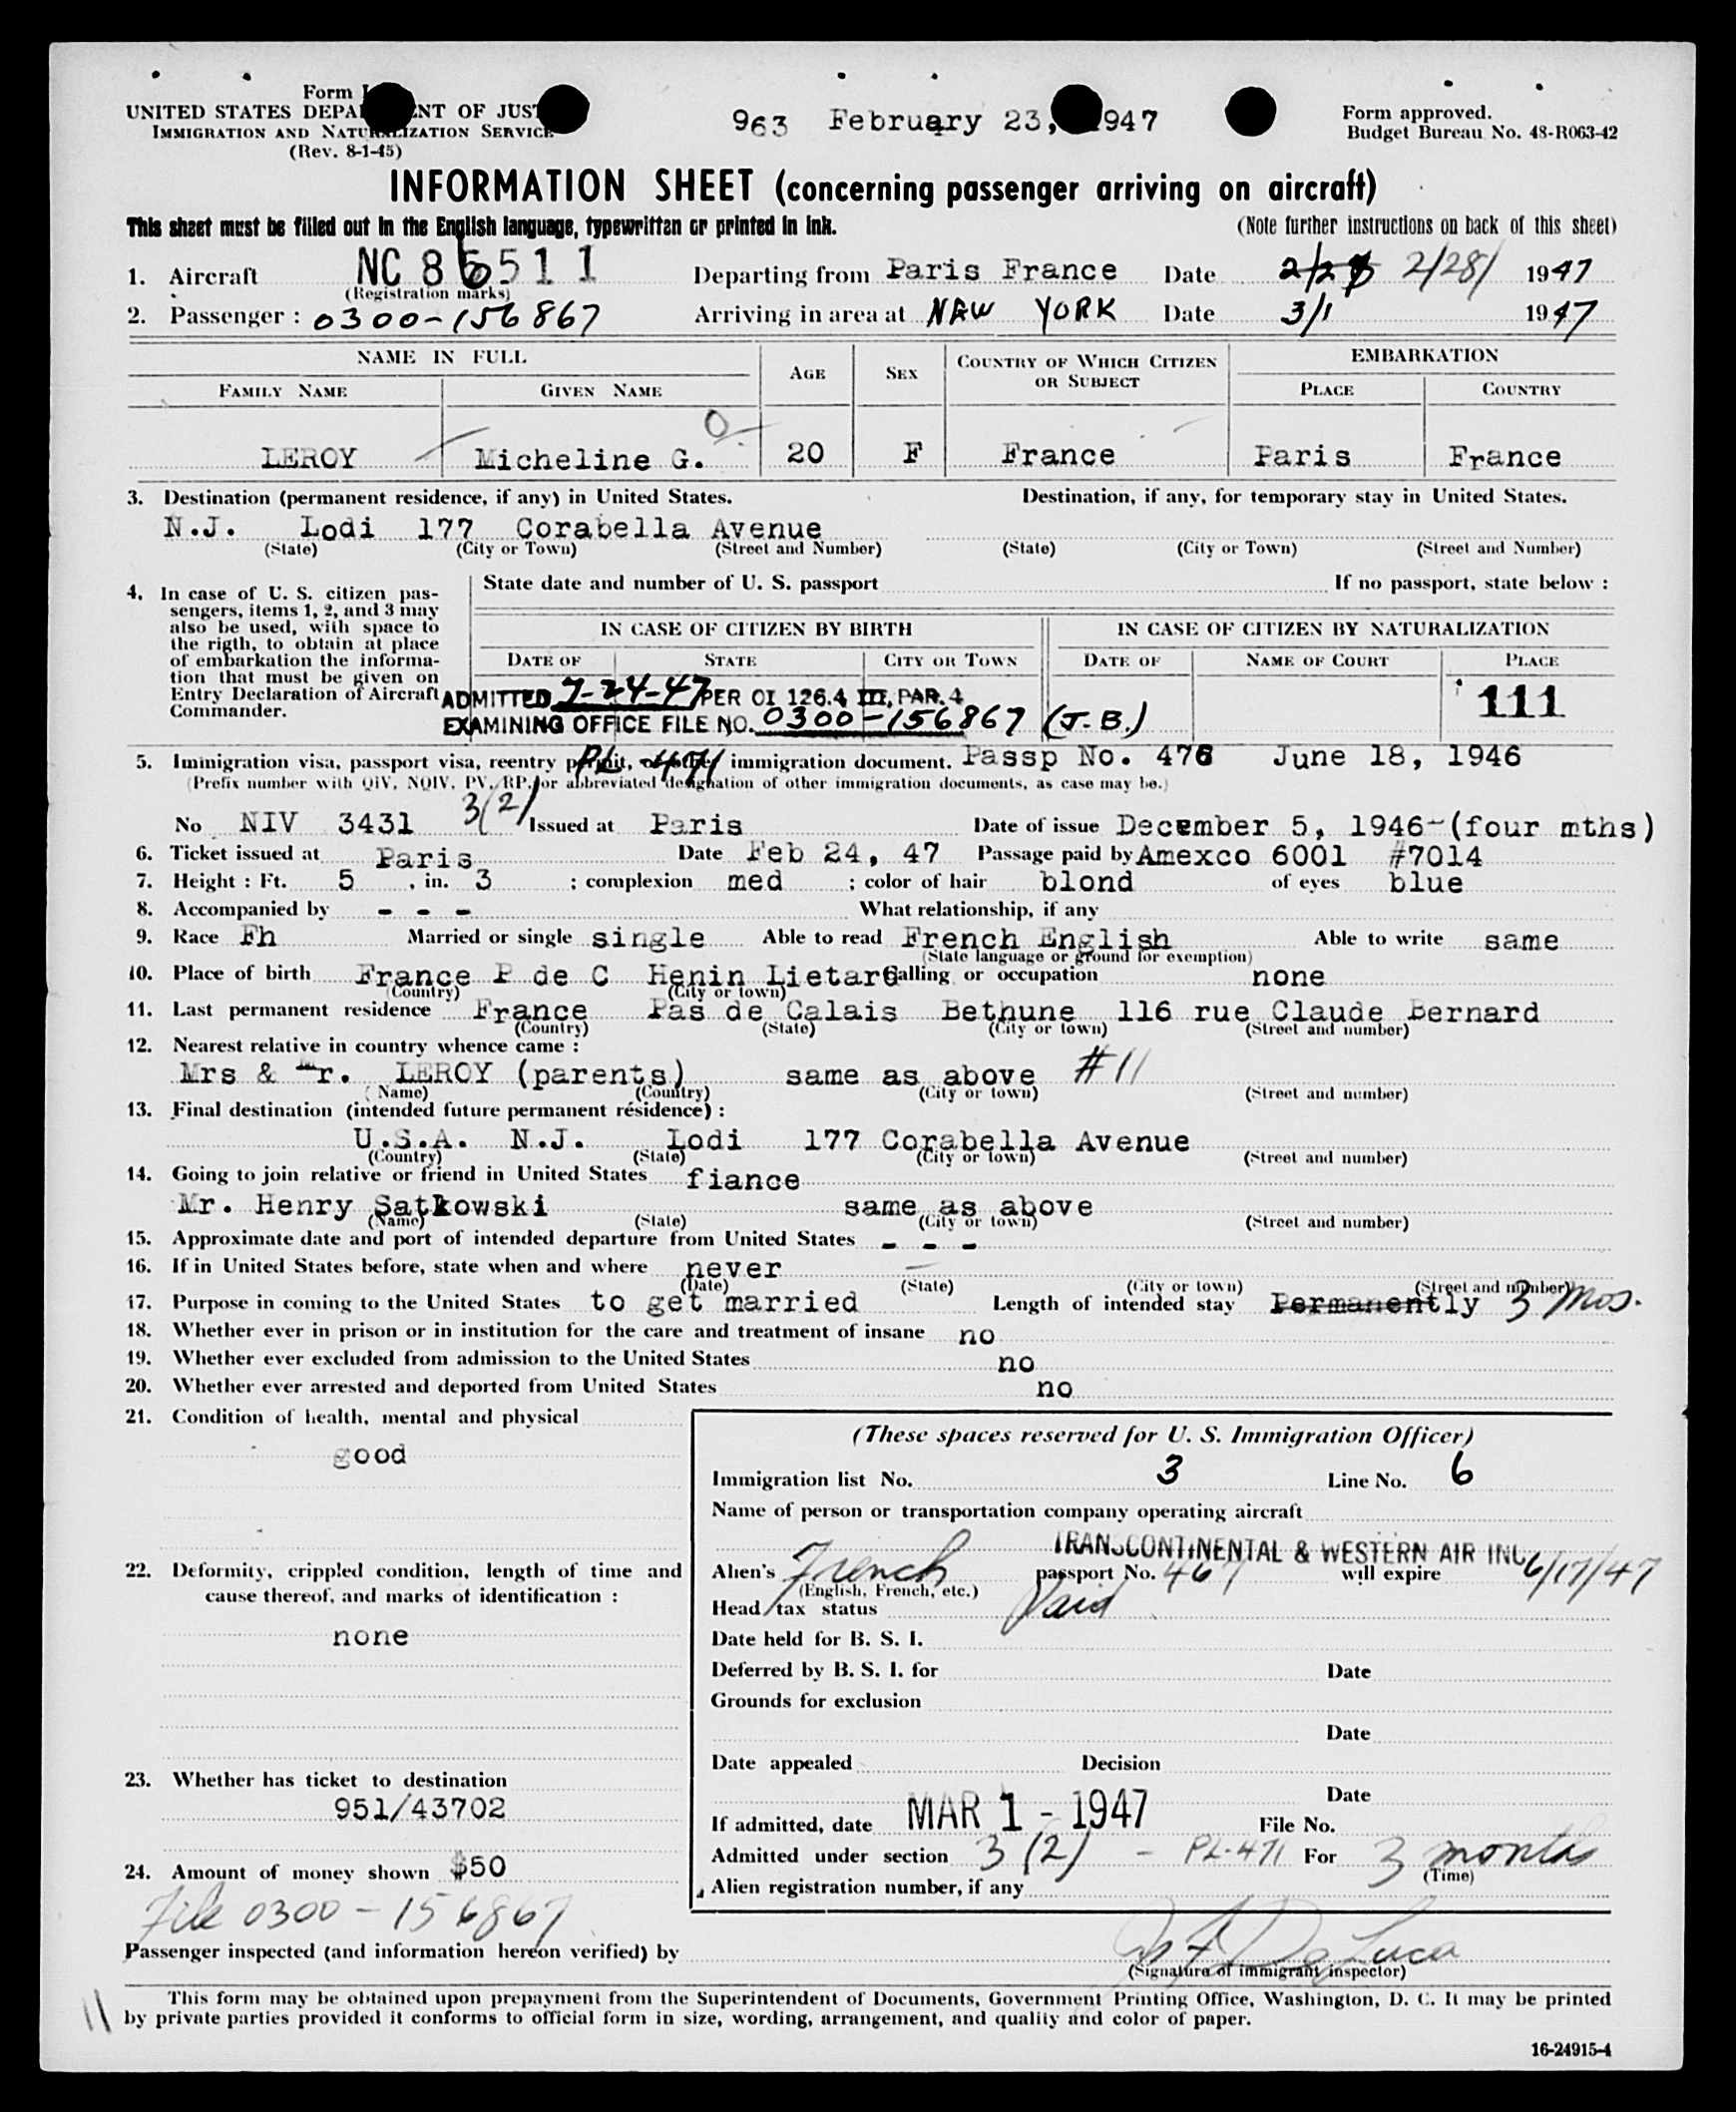 Form I
UNITED STATES DEPA ENT OF JUST
IMMIGRATION AND NATURALIZATION SERVICE
(Rev. 8-1-45)
963 February 23, 1947
Form approved.
Budget Bureau No. 48-R063-42
INFORMATION SHEET (concerning passenger arriving on aircraft)
This sheet must be filled out in the English language, typewritten or printed in ink. (Note further instructions on back of this sheet)
1. Aircraft NC 86511 Departing from Paris France Date 2/28/ 1947
(Registration marks)
2. Passenger : 0300-156867 Arriving in area at NEW YORK Date 3/1 1947
NAME IN FULL AGE SEX COUNTRY OF WHICH CITIZEN OR SUBJECT EMBARKATION
FAMILY NAME GIVEN NAME PLACE COUNTRY
LEROY Micheline G. 20 F France Paris France
3. Destination (permanent residence, if any) in United States. Destination, if any, for temporary stay in United States.
N.J. Lodi 177 Corabella Avenue
(State) (City or Town) (Street and Number) (State) (City or Town) (Street and Number)
4. In case of U. S. citizen pas-
sengers, items 1, 2, and 3 may
also be used, with space to
the rigth, to obtain at place
of embarkation the informa-
tion that must be given on
Entry Declaration of Aircraft
Commander.
State date and number of U. S. passport If no passport, state below :
IN CASE OF CITIZEN BY BIRTH IN CASE OF CITIZEN BY NATURALIZATION
DATE OF STATE CITY OR TOWN DATE OF NAME OF COURT PLACE
ADMITTED 7-24-47 PER OI 126.4 III, PAR. 4 111
EXAMINING OFFICE FILE NO. 0300-156867 (J.B.)
PL 471
5. Immigration visa, passport visa, reentry permit, or other immigration document. Passp No. 476 June 18, 1946
(Prefix number with QIV, NQIV, PV, RP, or abbreviated designation of other immigration documents, as case may be.)
No NIV 3431 3(2) Issued at Paris Date of issue December 5, 1946-(four mths)
6. Ticket issued at Paris Date Feb 24, 47 Passage paid by Amexco 6001 #7014
7. Height : Ft. 5 , in. 3 ; complexion med ; color of hair blond of eyes blue
8. Accompanied by - - - What relationship, if any
9. Race Fh Married or single single Able to read French English Able to write same
(State language or ground for exemption)
10. Place of birth France P de C Henin Lietard Calling or occupation none
(Country) (City or town)
11. Last permanent residence France Pas de Calais Bethune 116 rue Claude Bernard
(Country) (State) (City or town) (Street and number)
12. Nearest relative in country whence came :
Mrs & Mr. LEROY (parents) same as above #11
(Name) (Country) (City or town) (Street and number)
13. Final destination (intended future permanent résidence) :
U.S.A. N.J. Lodi 177 Corabella Avenue
(Country) (State) (City or town) (Street and number)
14. Going to join relative or friend in United States fiance
Mr. Henry Satkowski same as above
(Name) (State) (City or town) (Street and number)
15. Approximate date and port of intended departure from United States - - -
16. If in United States before, state when and where never
(Date) (State) (City or town) (Street and number)
17. Purpose in coming to the United States to get married Length of intended stay Permanently 3 mos.
18. Whether ever in prison or in institution for the care and treatment of insane no
19. Whether ever excluded from admission to the United States no
20. Whether ever arrested and deported from United States no
21. Condition of health, mental and physical
good
22. Deformity, crippled condition, length of time and
cause thereof, and marks of identification :
none
23. Whether has ticket to destination
951/43702
24. Amount of money shown $50
File 0300-156867
(These spaces reserved for U. S. Immigration Officer)
Immigration list No. 3 Line No. 6
Name of person or transportation company operating aircraft
TRANSCONTINENTAL & WESTERN AIR INC
Alien's French passport No. 467 will expire 6/17/47
(English, French, etc.)
Head tax status Paid
Date held for B. S. I.
Deferred by B. S. I. for Date
Grounds for exclusion
Date
Date appealed Decision
Date
If admitted, date MAR 1 - 1947 File No.
Admitted under section 3 (2) - PL-471 For 3 months
(Time)
Alien registration number, if any
Passenger inspected (and information hereon verified) by De Luca
(Signature of immigrant inspector)
This form may be obtained upon prepayment from the Superintendent of Documents, Government Printing Office, Washington, D. C. It may be printed
by private parties provided it conforms to official form in size, wording, arrangement, and quality and color of paper.
16-24915-4